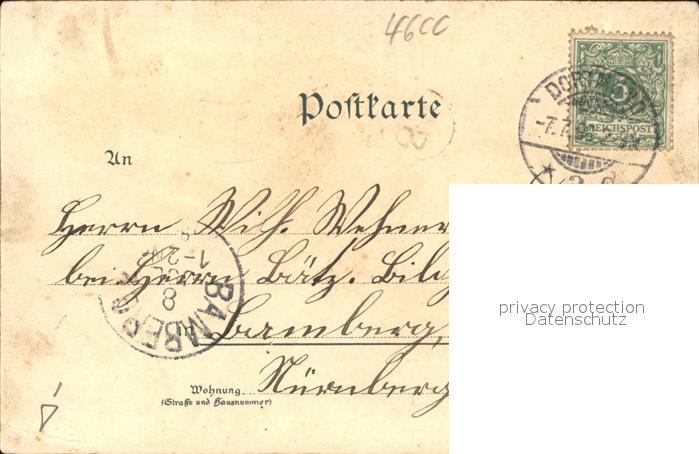 46CC
Postkarte
5
REICHSPOST
DORTMUND
-7.7.
An
Herrn Wilh. Wehner
bei Herrn Bätz. Bild
in Bamberg,
Nürnberg
BAMBERG
8
1-2N
Wohnung
(Straße und Hausnummer)
privacy protection
Datenschutz